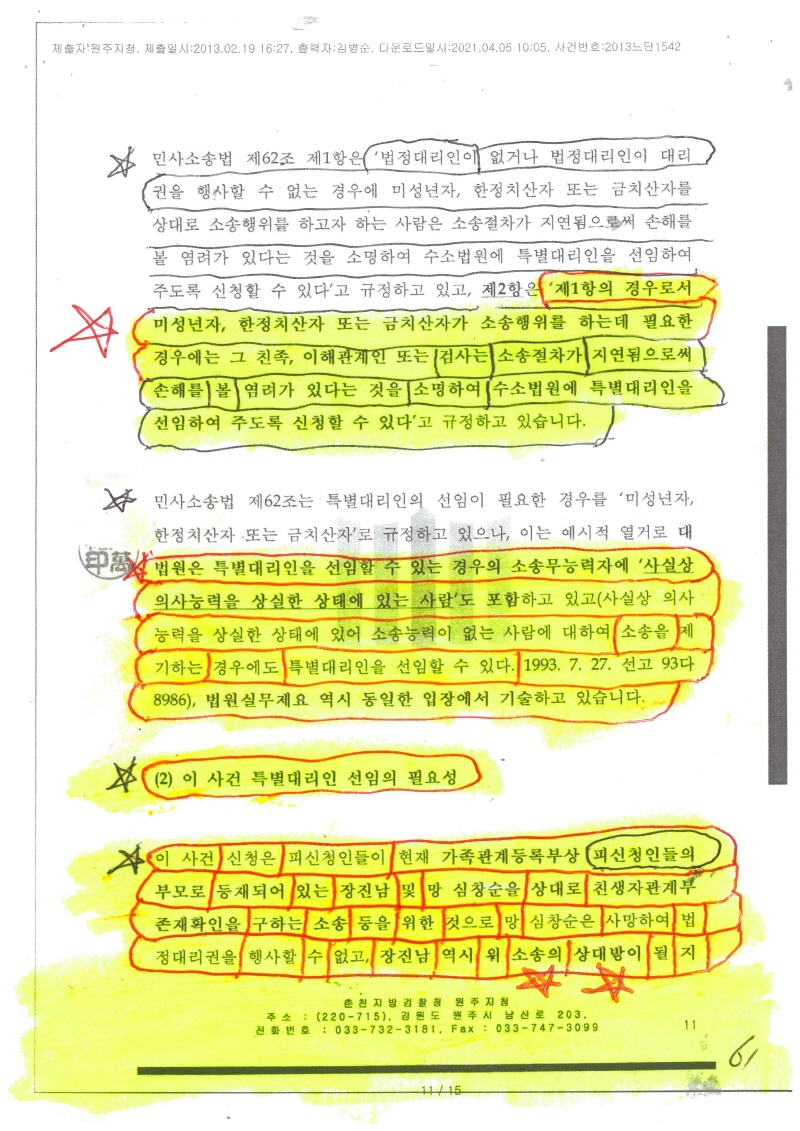 제출자:원주지청, 제출일시:2013.02.19 16:27, 출력자:김병순, 다운로드일시:2021.04.05 10:05, 사건번호:2013느단1542
민사소송법 제62조 제1항은 '법정대리인이 없거나 법정대리인이 대리
권을 행사할 수 없는 경우에 미성년자, 한정치산자 또는 금치산자를
상대로 소송행위를 하고자 하는 사람은 소송절차가 지연됨으로써 손해를
볼 염려가 있다는 것을 소명하여 수소법원에 특별대리인을 선임하여
주도록 신청할 수 있다'고 규정하고 있고, 제2항은 '제1항의 경우로서
미성년자, 한정치산자 또는 금치산자가 소송행위를 하는데 필요한
경우에는 그 친족, 이해관계인 또는 검사는 소송절차가 지연됨으로써
손해를 볼 염려가 있다는 것을 소명하여 수소법원에 특별대리인을
선임하여 주도록 신청할 수 있다'고 규정하고 있습니다.
민사소송법 제62조는 특별대리인의 선임이 필요한 경우를 '미성년자,
한정치산자 또는 금치산자'로 규정하고 있으나, 이는 예시적 열거로 대
법원은 특별대리인을 선임할 수 있는 경우의 소송무능력자에 '사실상
의사능력을 상실한 상태에 있는 사람'도 포함하고 있고(사실상 의사
능력을 상실한 상태에 있어 소송능력이 없는 사람에 대하여 소송을 제
기하는 경우에도 특별대리인을 선임할 수 있다. 1993. 7. 27. 선고 93다
8986), 법원실무제요 역시 동일한 입장에서 기술하고 있습니다.
(2) 이 사건 특별대리인 선임의 필요성
이 사건 신청은 피신청인들이 현재 가족관계등록부상 피신청인들의
부모로 등재되어 있는 장진남 및 망 심창순을 상대로 친생자관계부
존재확인을 구하는 소송 등을 위한 것으로 망 심창순은 사망하여 법
정대리권을 행사할 수 없고, 장진남 역시 위 소송의 상대방이 될 지
춘천지방검찰청 원주지청
주소 : (220-715), 강원도 원주시 남산로 203,
전화번호 : 033-732-3181, Fax : 033-747-3099
11
61
11 / 15